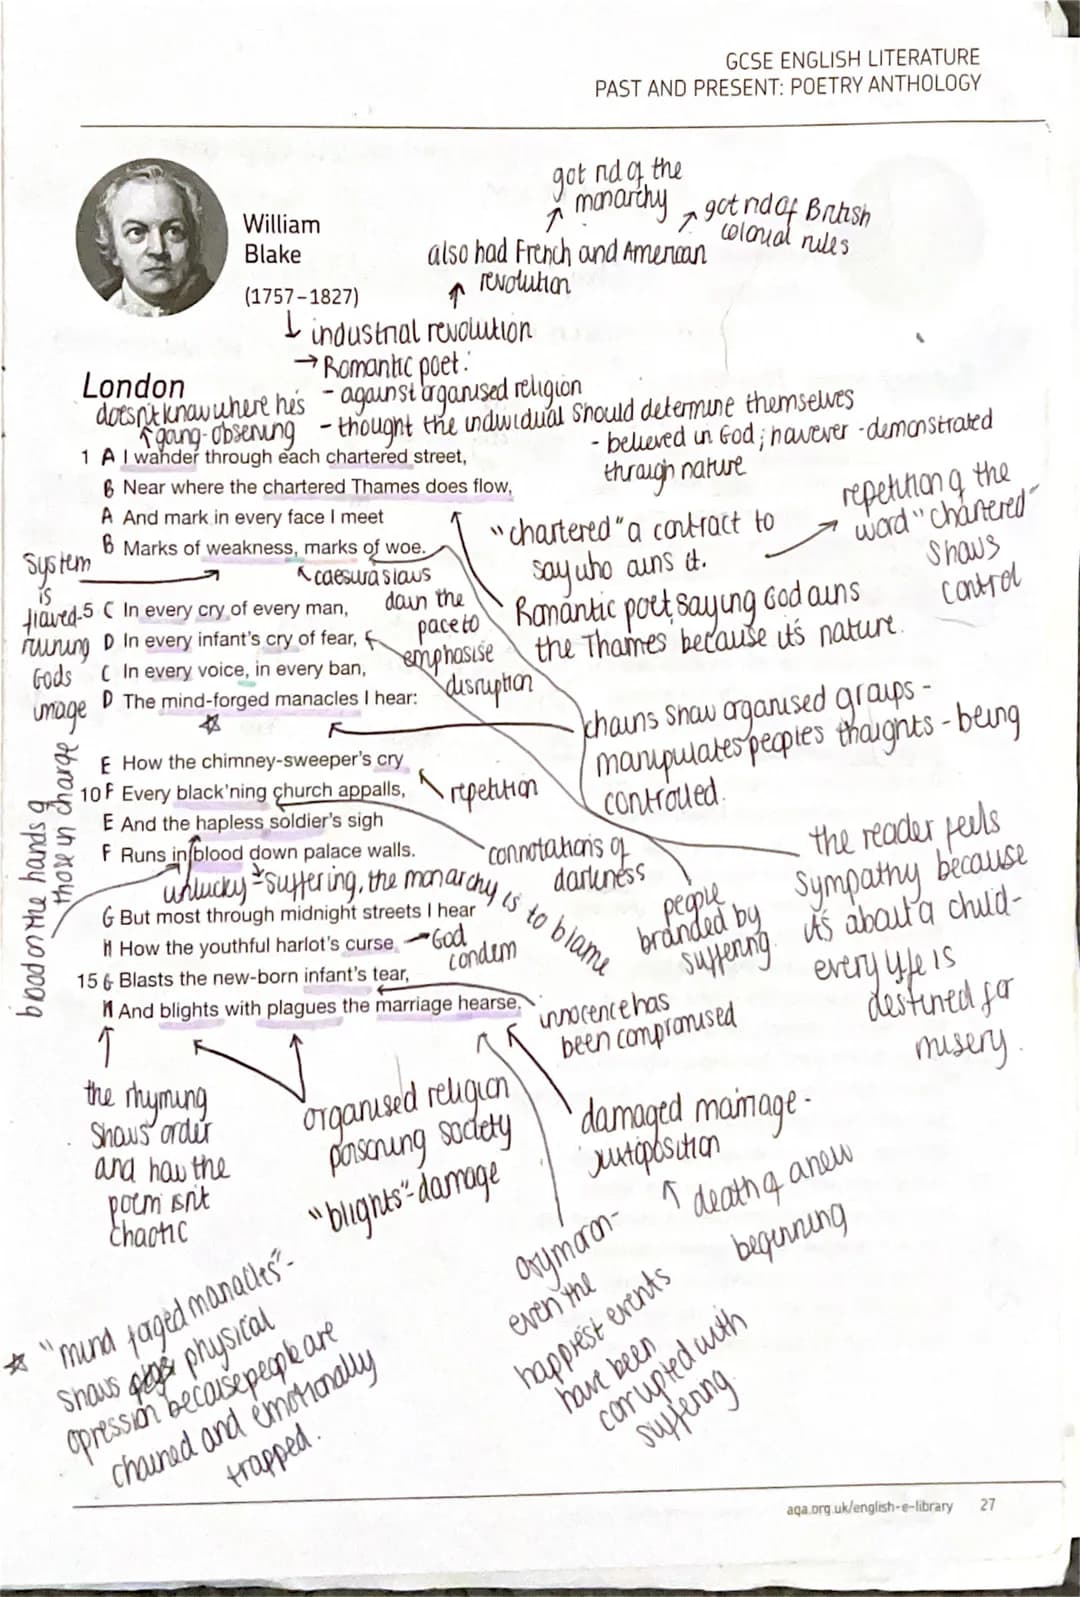 GCSE ENGLISH LITERATURE
PAST AND PRESENT: POETRY ANTHOLOGY
got rid of the
monarchy
got rid of British
colonial rules
William
Blake
(1757–1827)
also had French and American
revolution
industrial revolution
→ Romantic poet:
- against organised religion
- thought the individual should determine themselves
- believed in God; however - demonstrated
through nature
London
doesn't know where he's
going - observing
1 A I wander through each chartered street,
B Near where the chartered Thames does flow,
A And mark in every face I meet
B Marks of weakness, marks of woe.
"chartered" a contract to
say who owns it.
repetition of the
word "chartered"
shows
control
Romantic poet, saying God owns
the Thames because it's nature.
caesura slows
down the
pace to
emphasise
disruption
System
is
flawed-
ruining
Gods
image
5 C In every cry of every man,
D In every infant's cry of fear,
C In every voice, in every ban,
D The mind-forged manacles I hear:
chains show organised groups -
manipulates peoples thoughts - being
controlled.
E How the chimney-sweeper's cry
10 F Every black'ning church appalls,
E And the hapless soldier's sigh
F Runs in blood down palace walls.
repetition
connotations of
darkness
people
branded by
suffering.
the reader feels
sympathy because
it's about a child-
every life is
destined for
misery.
blood on the hands of
those in charge
unlucky - suffering, the monarchy is to blame
G But most through midnight streets I hear
H How the youthful harlot's curse
15 G Blasts the new-born infant's tear,
H And blights with plagues the marriage hearse.
God
condem
innocence has
been compromised
the rhyming
shows order
and how the
poem isn't
chaotic
organised religion
poisoning society
"blights" - damage
damaged marriage -
juxtaposition
death of a new
beginning
oxymoron-
even the
happiest events
have been
corrupted with
suffering.
"mind forged manacles" -
shows physical
opression because people are
chained and emotionally
trapped.
aqa.org.uk/english-e-library 27